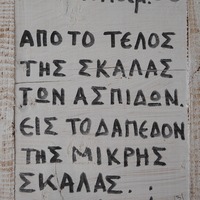 ΑΠΟ ΤΟ ΤΕΛΟΣ
ΤΗΣ ΣΚΑΛΑΣ
ΤΩΝ ΑΣΠΙΔΩΝ.
ΕΙΣ ΤΟ ΔΑΠΕΔΟΝ
ΤΗΣ ΜΙΚΡΗΣ
ΣΚΑΛΑΣ.